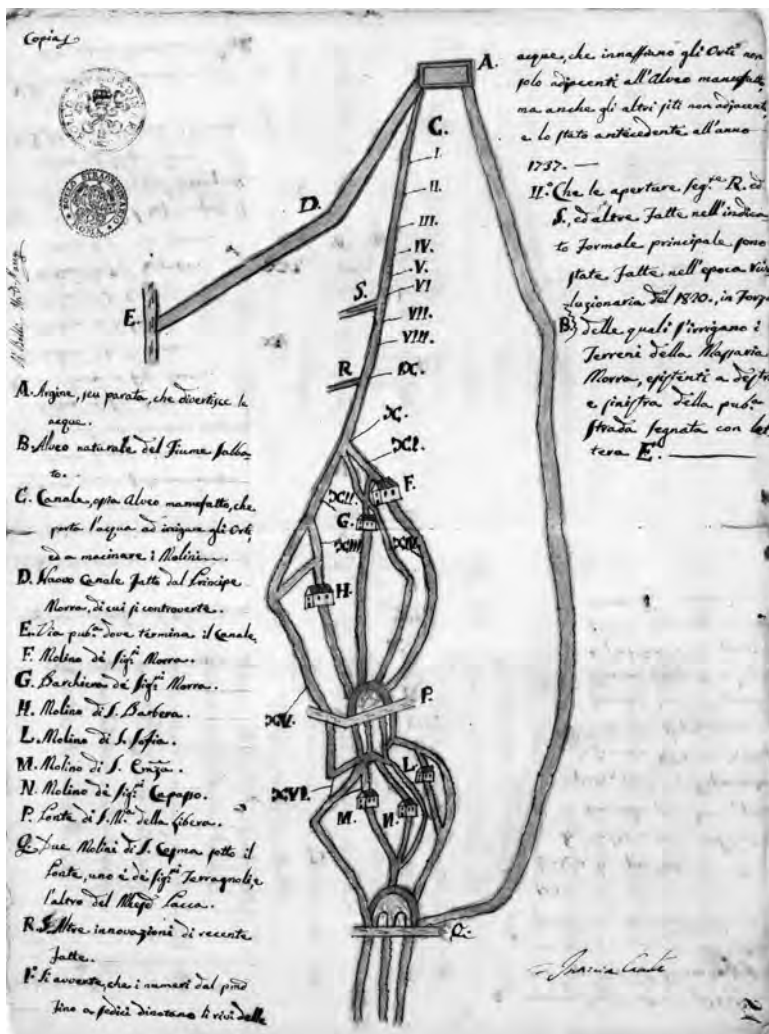 Copia
A.
C.
I.
II.
III.
IV.
V.
VI
VII.
VIII.
IX.
X.
XI.
XII.
XIII
XIV.
XV.
XVI.
D.
E.
S.
R
F.
G.
H.
P.
L.
M.
N.
Q.
B.
BOLLO STRAORDINARIO
ROMA
A. Argine, seu parata, che divertisce le
acque.
B. Alveo naturale del Fiume Sabba-
to.
C. Canale, o sia Alveo manufatto, che
porta l'acqua ad irrigare gli Orti,
ed a macinare i Molini.
D. Nuovo Canale fatto dal Principe
Morra, di cui si controverte.
E. Via pub.ª dove termina il Canale.
F. Molino de' Sig.ri Morra.
G. Barchiera de' Sig.ri Morra.
H. Molino di S. Barbera.
L. Molino di S. Sofia.
M. Molino di S.
N. Molino de' Sig.ri Capasso.
P. Ponte di S. M.ª della Libera.
Q. Due Molini di S. Cosma sotto il
Ponte, uno è de' Sig.ri Terragnoli, e
l'altro del Pacca.
R. S. Altre innovazioni di recente
fatte.
I.º Si avverte, che i numeri dal
fino a sedici dinotano li rivi delle
acque, che innaffiano gli Orti non
solo adjacenti all'Alveo manufatto,
ma anche gli altri siti non adjacenti,
e lo stato antecedente all'anno
1737. —
II.º Che le aperture seg.te R. ed
S., ed altre fatte nell'indica
to Formale principale sono
state fatte nell'epoca rivo
luzionaria del 1820., in forza
delle quali s'irrigano i
Terreni della Massaria
Morra, esistenti a destra
e sinistra della pub.ª
strada segnata con let
tera E. —